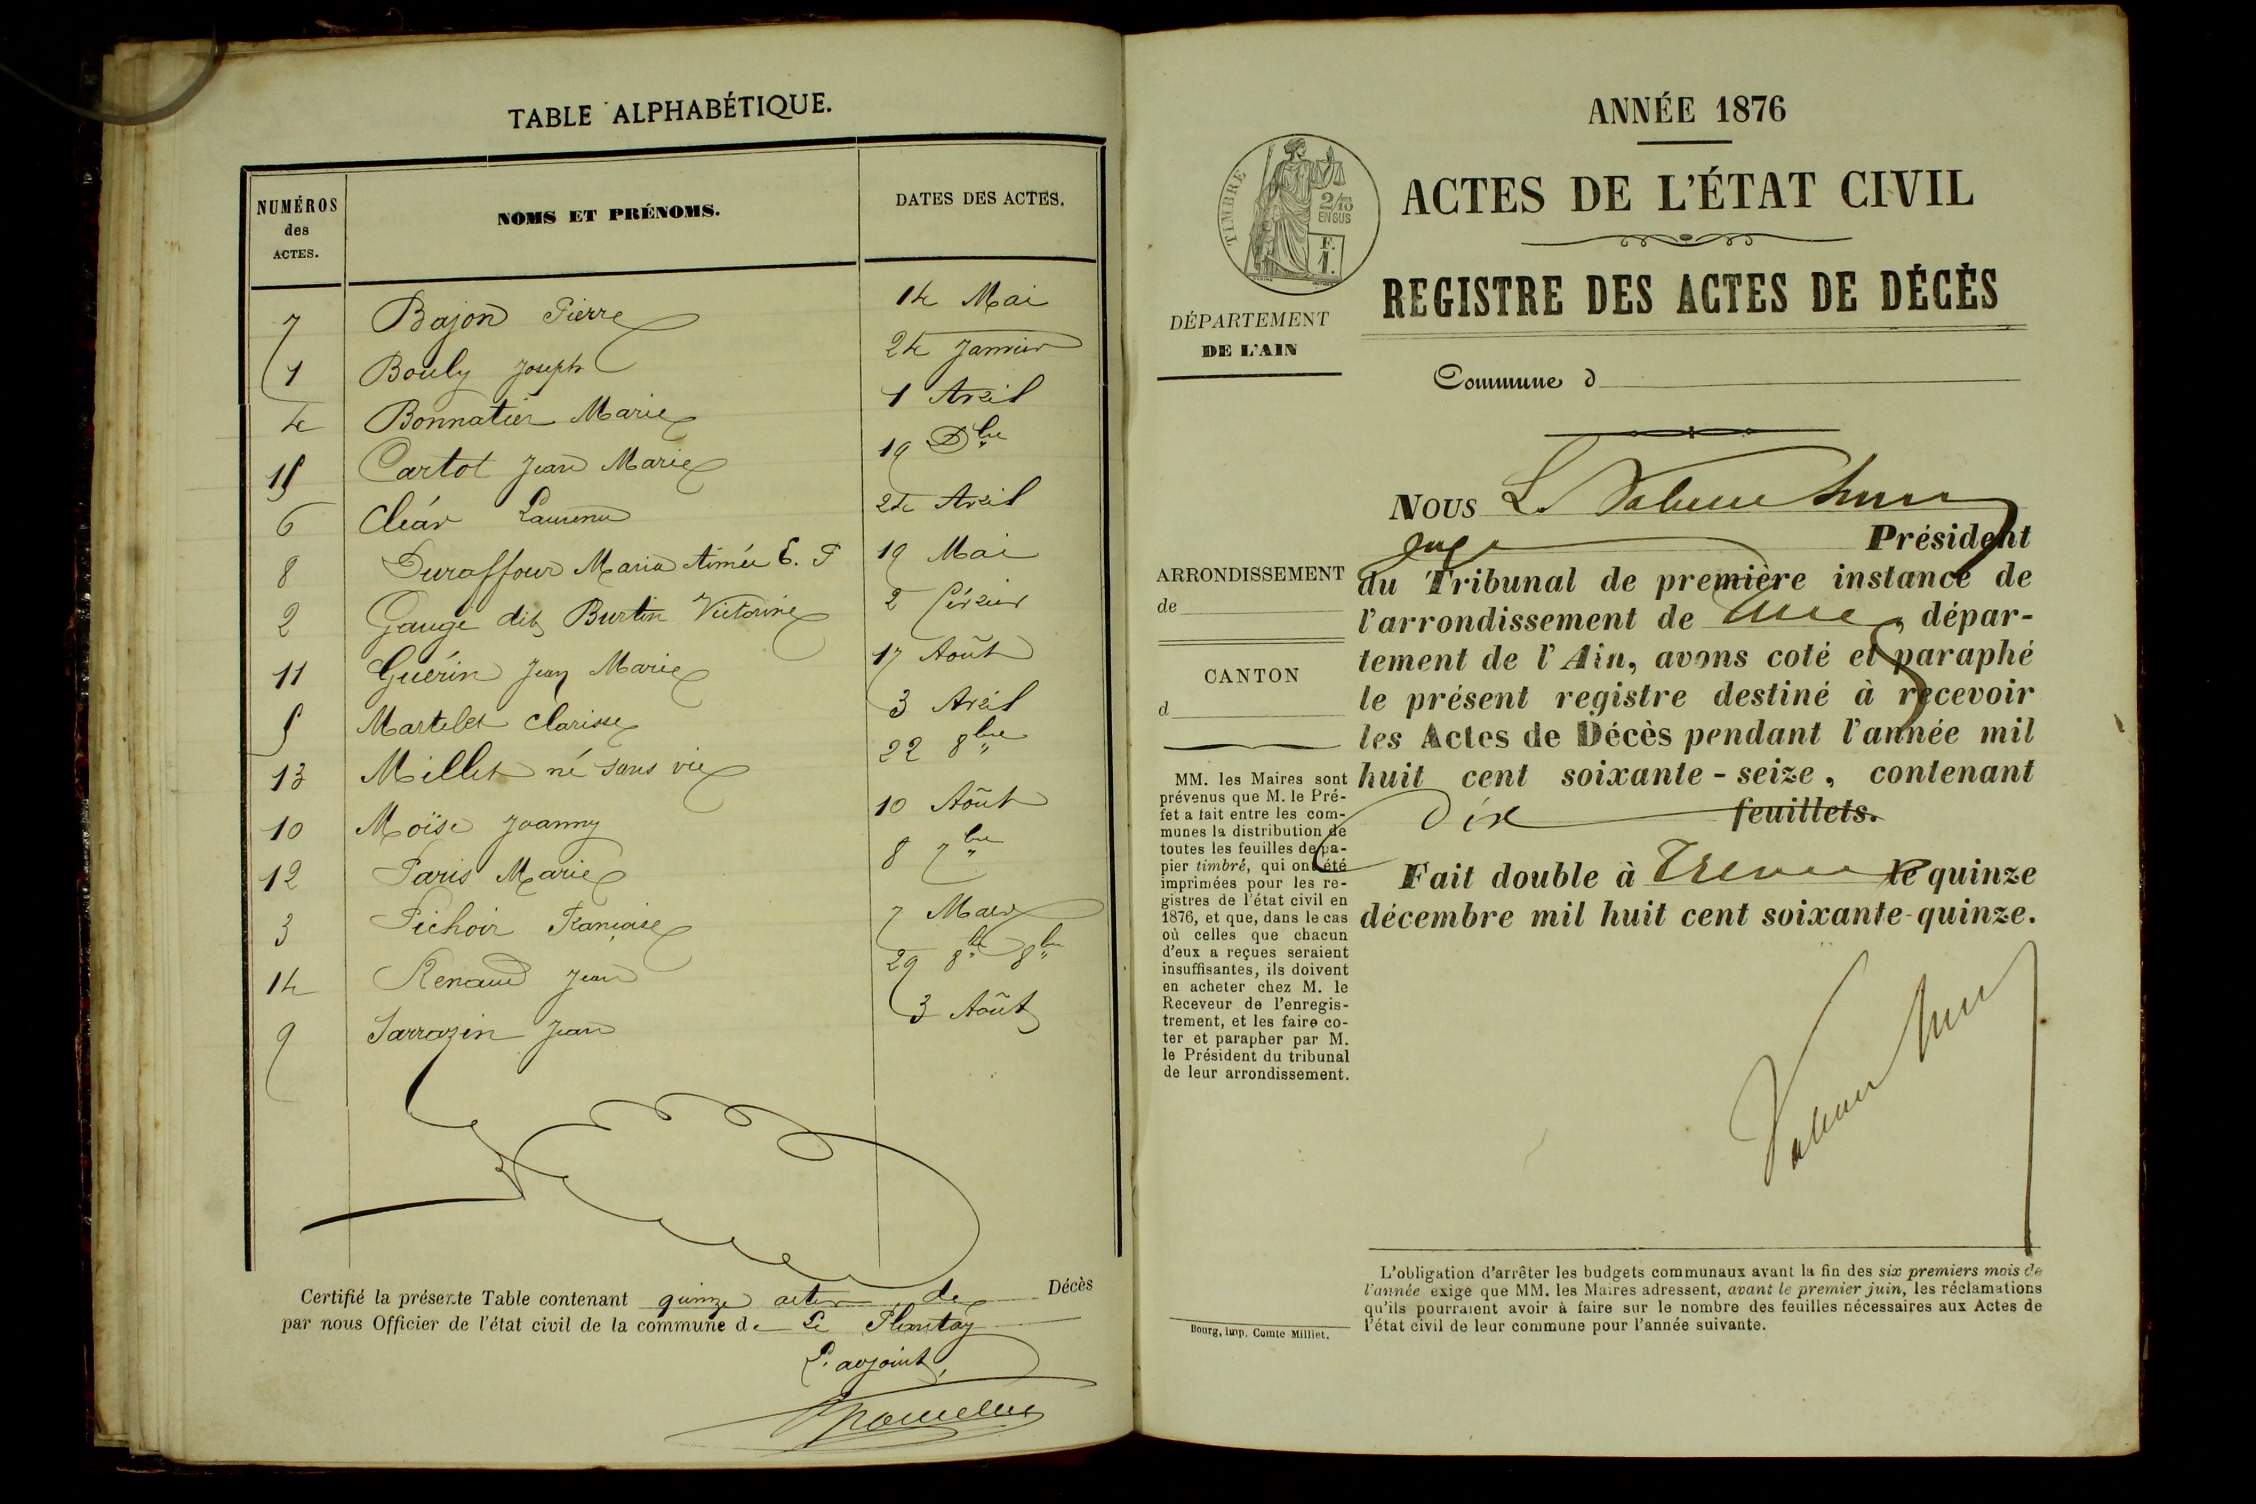 TABLE ALPHABÉTIQUE.
NUMÉROS
des
ACTES.
NOMS ET PRÉNOMS.
DATES DES ACTES.
7 Bajon Pierre 14 Mai
1 Bouly Joseph 24 Janvier
4 Bonnatier Marie 1 Avril
15 Cartot Jean Marie 19 Dbre
6 Cléar 24 Avril
8 Duraffour Maria Aimée E. P 19 Mai
2 Gauge dit Burtin Victorine 2 Février
11 Guérin Jean Marie 17 Août
5 Martelet Clarisse 3 Avril
13 Millet né sans vie 22 8bre
10 Moïse Joanny 10 Août
12 Paris Marie 8 7bre
3 Pichoir Françoise 7 Mars
14 Renaud Jean 29 8bre 8bre
9 Sarrazin Jean 3 Août
Certifié la présente Table contenant quinze actes de Décès
par nous Officier de l'état civil de la commune de Le Plantay
L'adjoint,
ANNÉE 1876
ACTES DE L'ÉTAT CIVIL
TIMBRE
2/10
EN SUS
F.
1.
REGISTRE DES ACTES DE DÉCÈS
DÉPARTEMENT
DE L'AIN
Commune d
ARRONDISSEMENT
de
CANTON
d
MM. les Maires sont
prévenus que M. le Pré-
fet a fait entre les com-
munes la distribution de
toutes les feuilles de pa-
pier timbré, qui ont été
imprimées pour les re-
gistres de l'état civil en
1876, et que, dans le cas
où celles que chacun
d'eux a reçues seraient
insuffisantes, ils doivent
en acheter chez M. le
Receveur de l'enregis-
trement, et les faire co-
ter et parapher par M.
le Président du tribunal
de leur arrondissement.
Bourg, imp. Comte Milliet.
NOUS L.
Juge Président
du Tribunal de première instance de
l'arrondissement de , dépar-
tement de l'Ain, avons coté et paraphé
le présent registre destiné à recevoir
les Actes de Décès pendant l'année mil
huit cent soixante-seize, contenant
Dix feuillets.
Fait double à Trévoux le quinze
décembre mil huit cent soixante-quinze.
L'obligation d'arrêter les budgets communaux avant la fin des six premiers mois de
l'année exige que MM. les Maires adressent, avant le premier juin, les réclamations
qu'ils pourraient avoir à faire sur le nombre des feuilles nécessaires aux Actes de
l'état civil de leur commune pour l'année suivante.